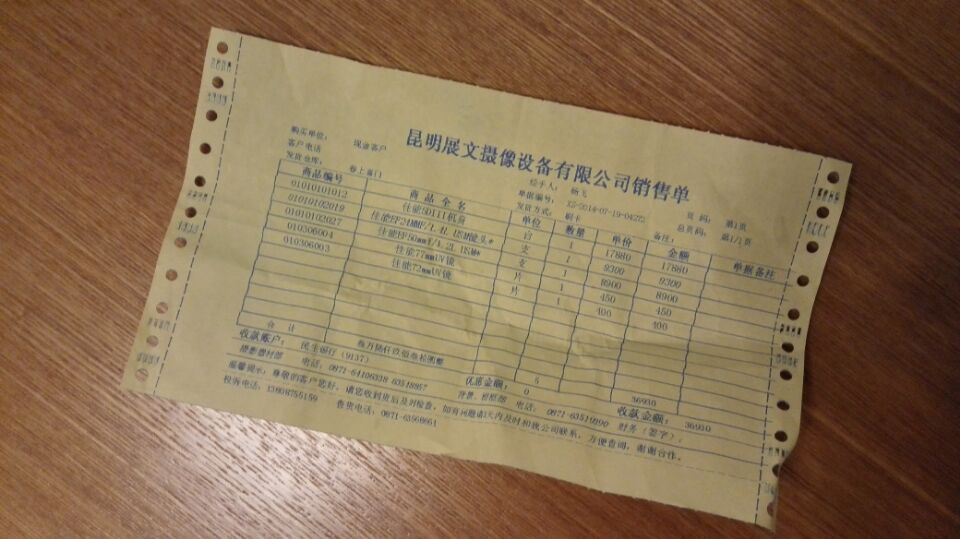 昆明展文摄像设备有限公司销售单
购买单位： 现金客户 经手人： 杨飞 页 码： 第1页
客户电话 单据编号： 总页码： 第1/1页
发货仓库： 卷上窗口 发货方式： 刷卡 备注：
商品编号 商 品 全 名 单位 数量 单价 金额 单据备注
01010101012 佳能5DIII机身 台 1 17880 17880
01010102019 佳能EF24MMF/1.4L USM镜头* 支 1 9300 9300
01010102027 佳能EF50mmF/1.2L USM* 支 1 8900 8900
010306004 佳能77mmUV镜 片 1 450 450
010306003 佳能72mmUV镜 片 1 400 400
合 计 叁万陆仟玖佰叁拾圆整 5 36930
收款账户： 民生银行（9137） 优惠金额： 0 收款金额： 36930
摄影器材部 电话：0871-64106338 63548857 电话：0871-63519200 财务（签字）：
温馨提示：尊敬的客户您好，请您收到货后及时检查，如有问题请3天内及时和我公司联系，方便查询，谢谢合作。
投诉电话：13608755159 售货电话：0871-63568661